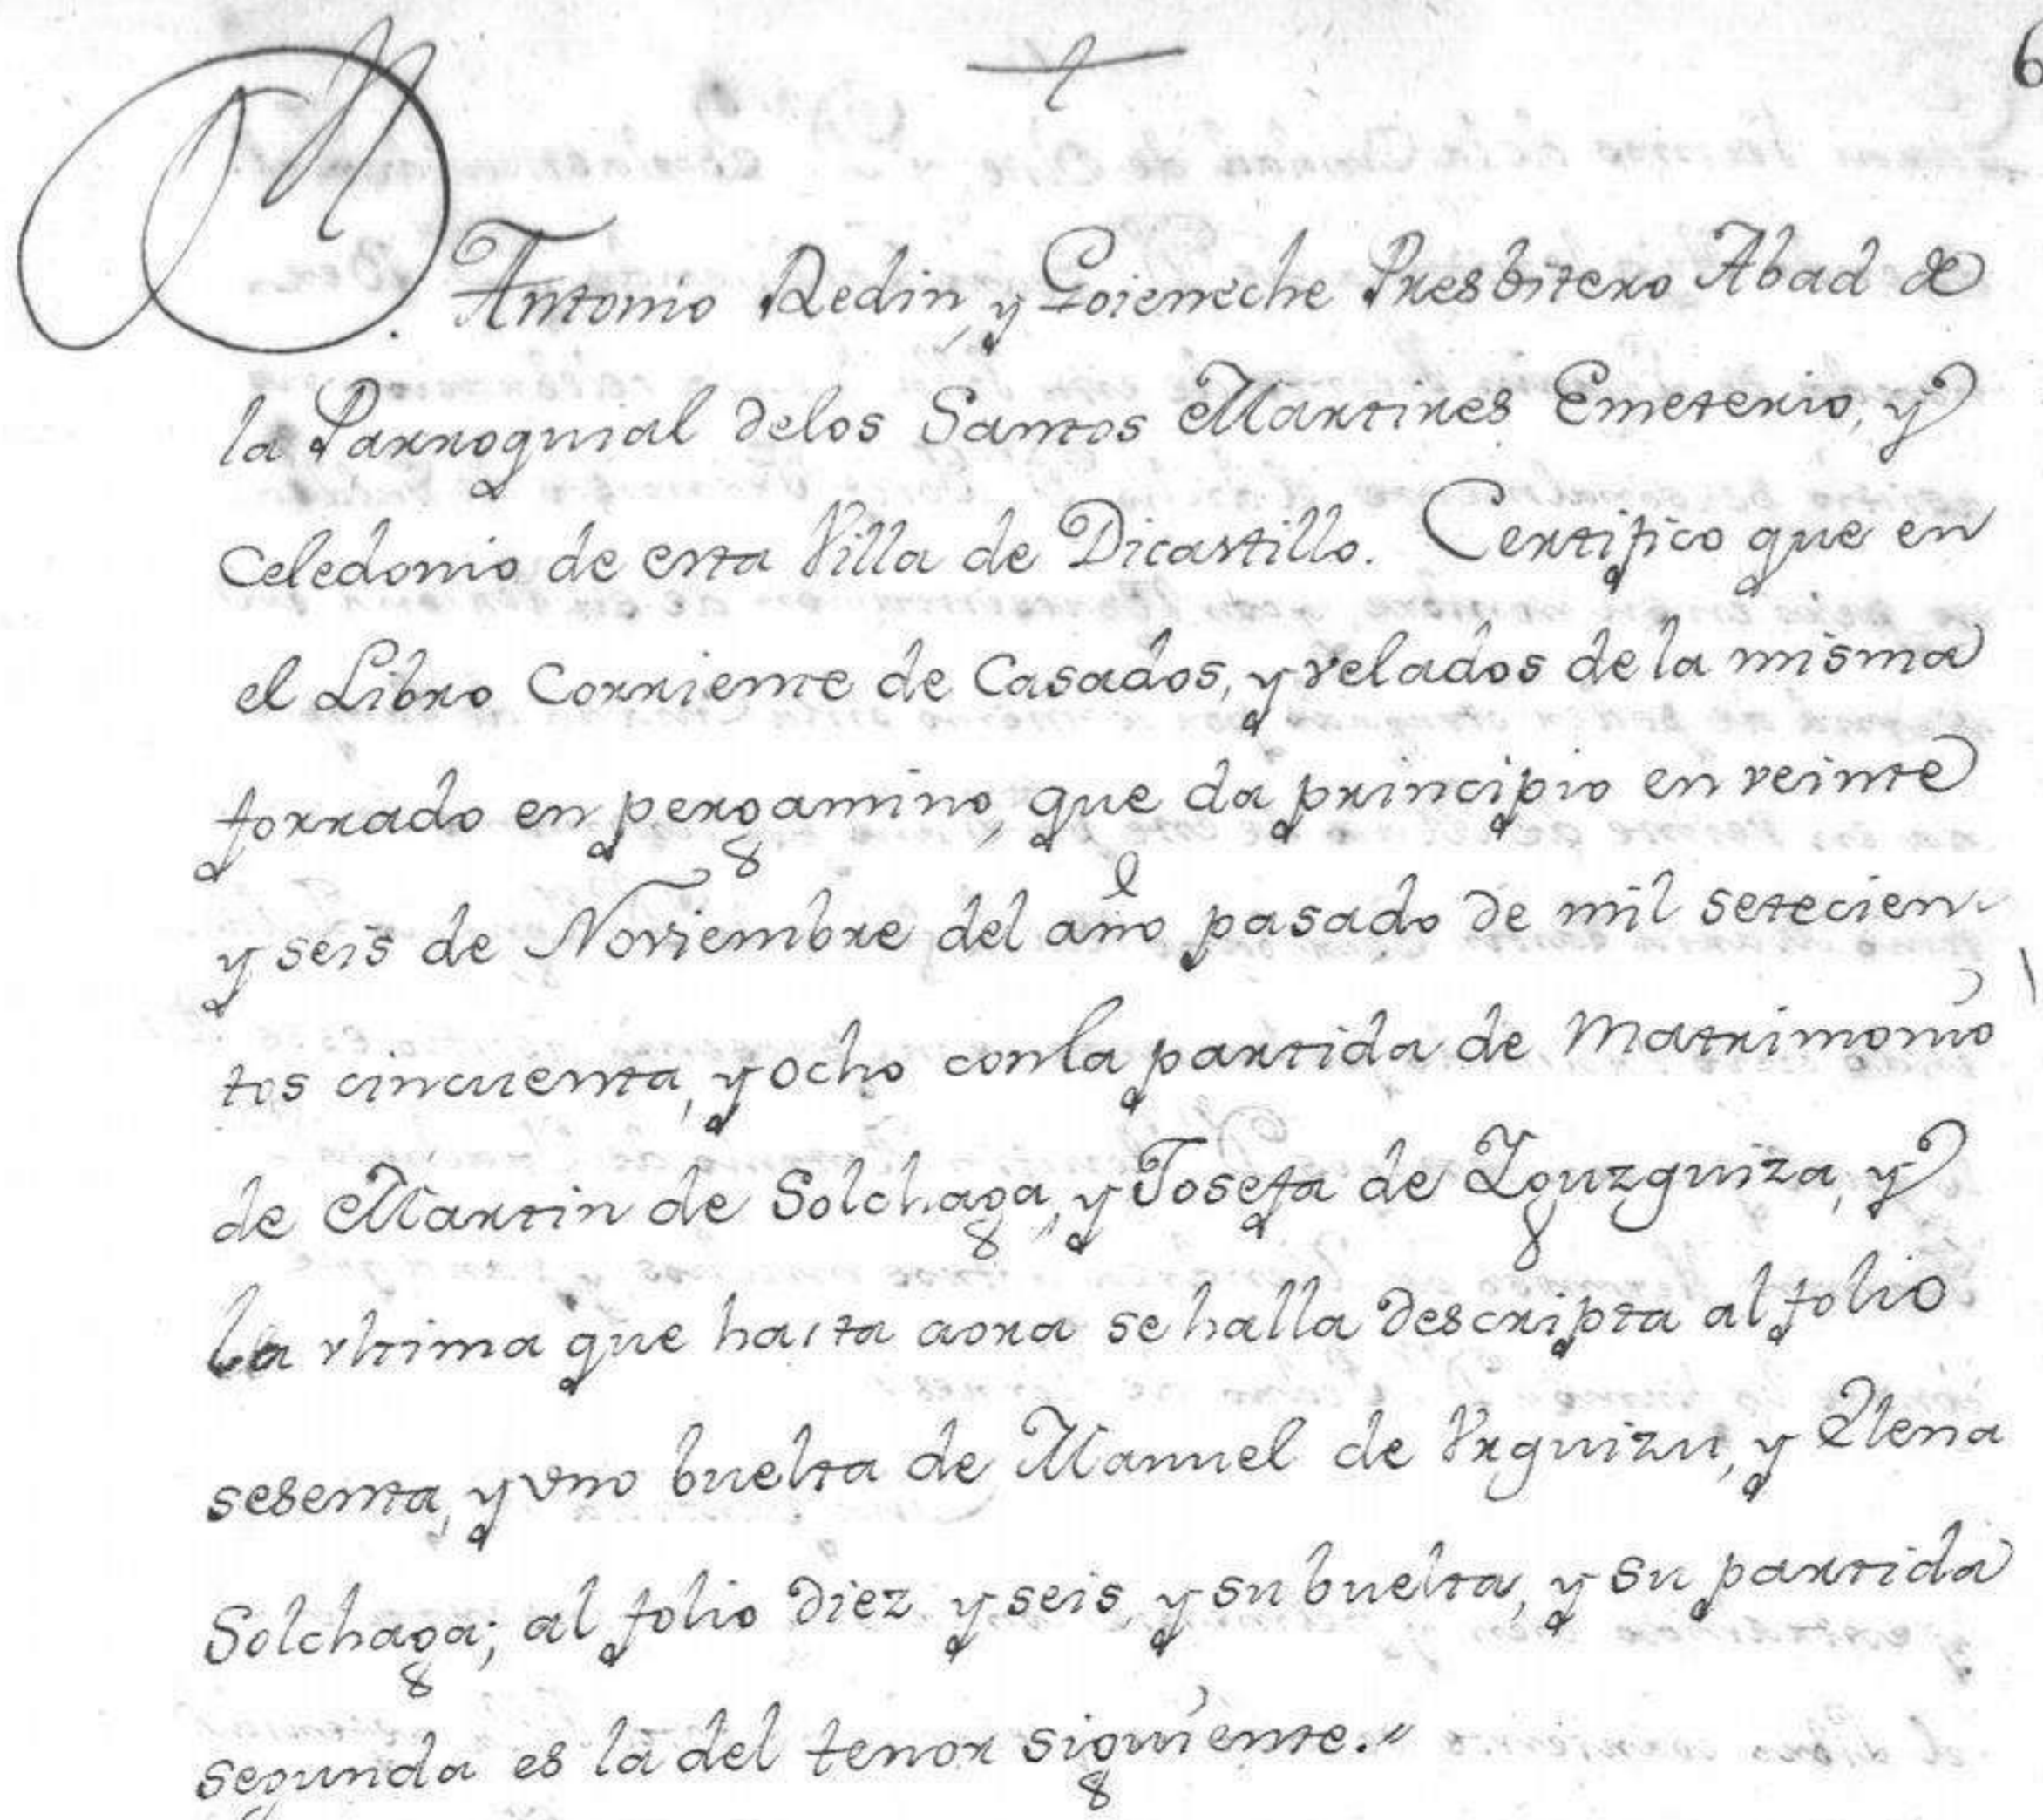 6
Dn. Antonio Redin, y Goieneche Presbitero Abad de
la Parroquial delos Santos Martires Emeterio, y
Celedonio de esta Villa de Dicastillo. Certifico que en
el Libro Corriente de Casados, y velados dela misma
forrado en pergamino, que da principio en veinte
y seis de Noviembre del año pasado de mil setecien-
tos cincuenta, y ocho conla partida de Matrimonio
de Martin de Solchaga, y Josefa de Yguzguiza, y
la vltima que hasta aora se halla descripta al folio
sesenta, y vno buelta de Manuel de Vrquizu, y Elena
Solchaga; al folio diez y seis, y su buelta, y su partida
segunda es la del tenor siguiente.